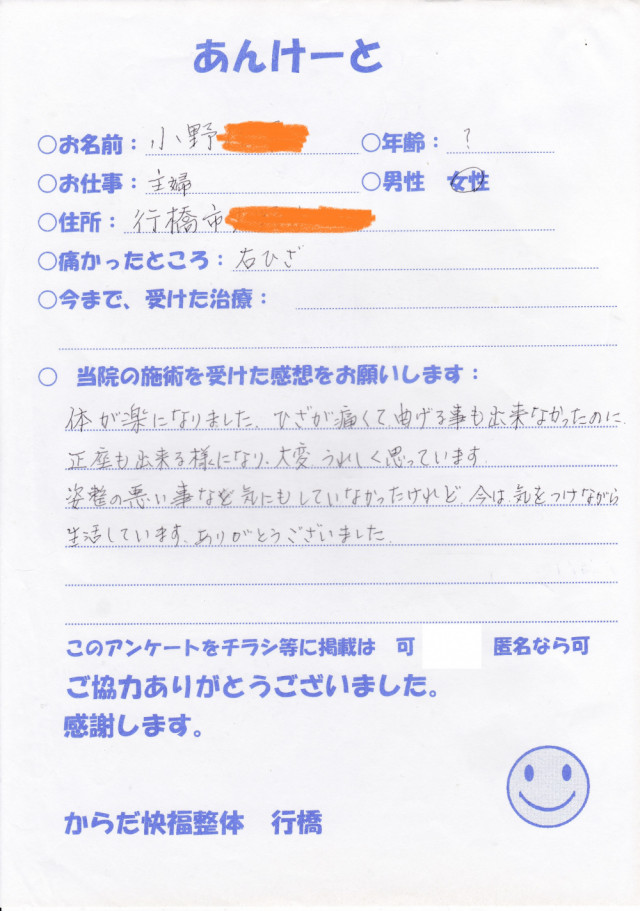 あんけーと
○お名前：小野
○年齢：？
○お仕事：主婦
○男性 女性
○住所：行橋市
○痛かったところ：右ひざ
○今まで、受けた治療：
○ 当院の施術を受けた感想をお願いします：
体が楽になりました。ひざが痛くて、曲げる事も出来なかったのに、
正座も出来る様になり、大変うれしく思っています。
姿整の悪い事など気にもしていなかったけれど、今は、気をつけながら
生活しています。ありがとうございました。
このアンケートをチラシ等に掲載は 可 匿名なら可
ご協力ありがとうございました。
感謝します。
からだ快福整体 行橋